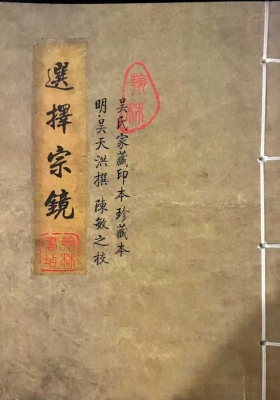 選擇宗鏡
吳氏家藏印本珍藏本
明·吴天洪撰 陳敏之校